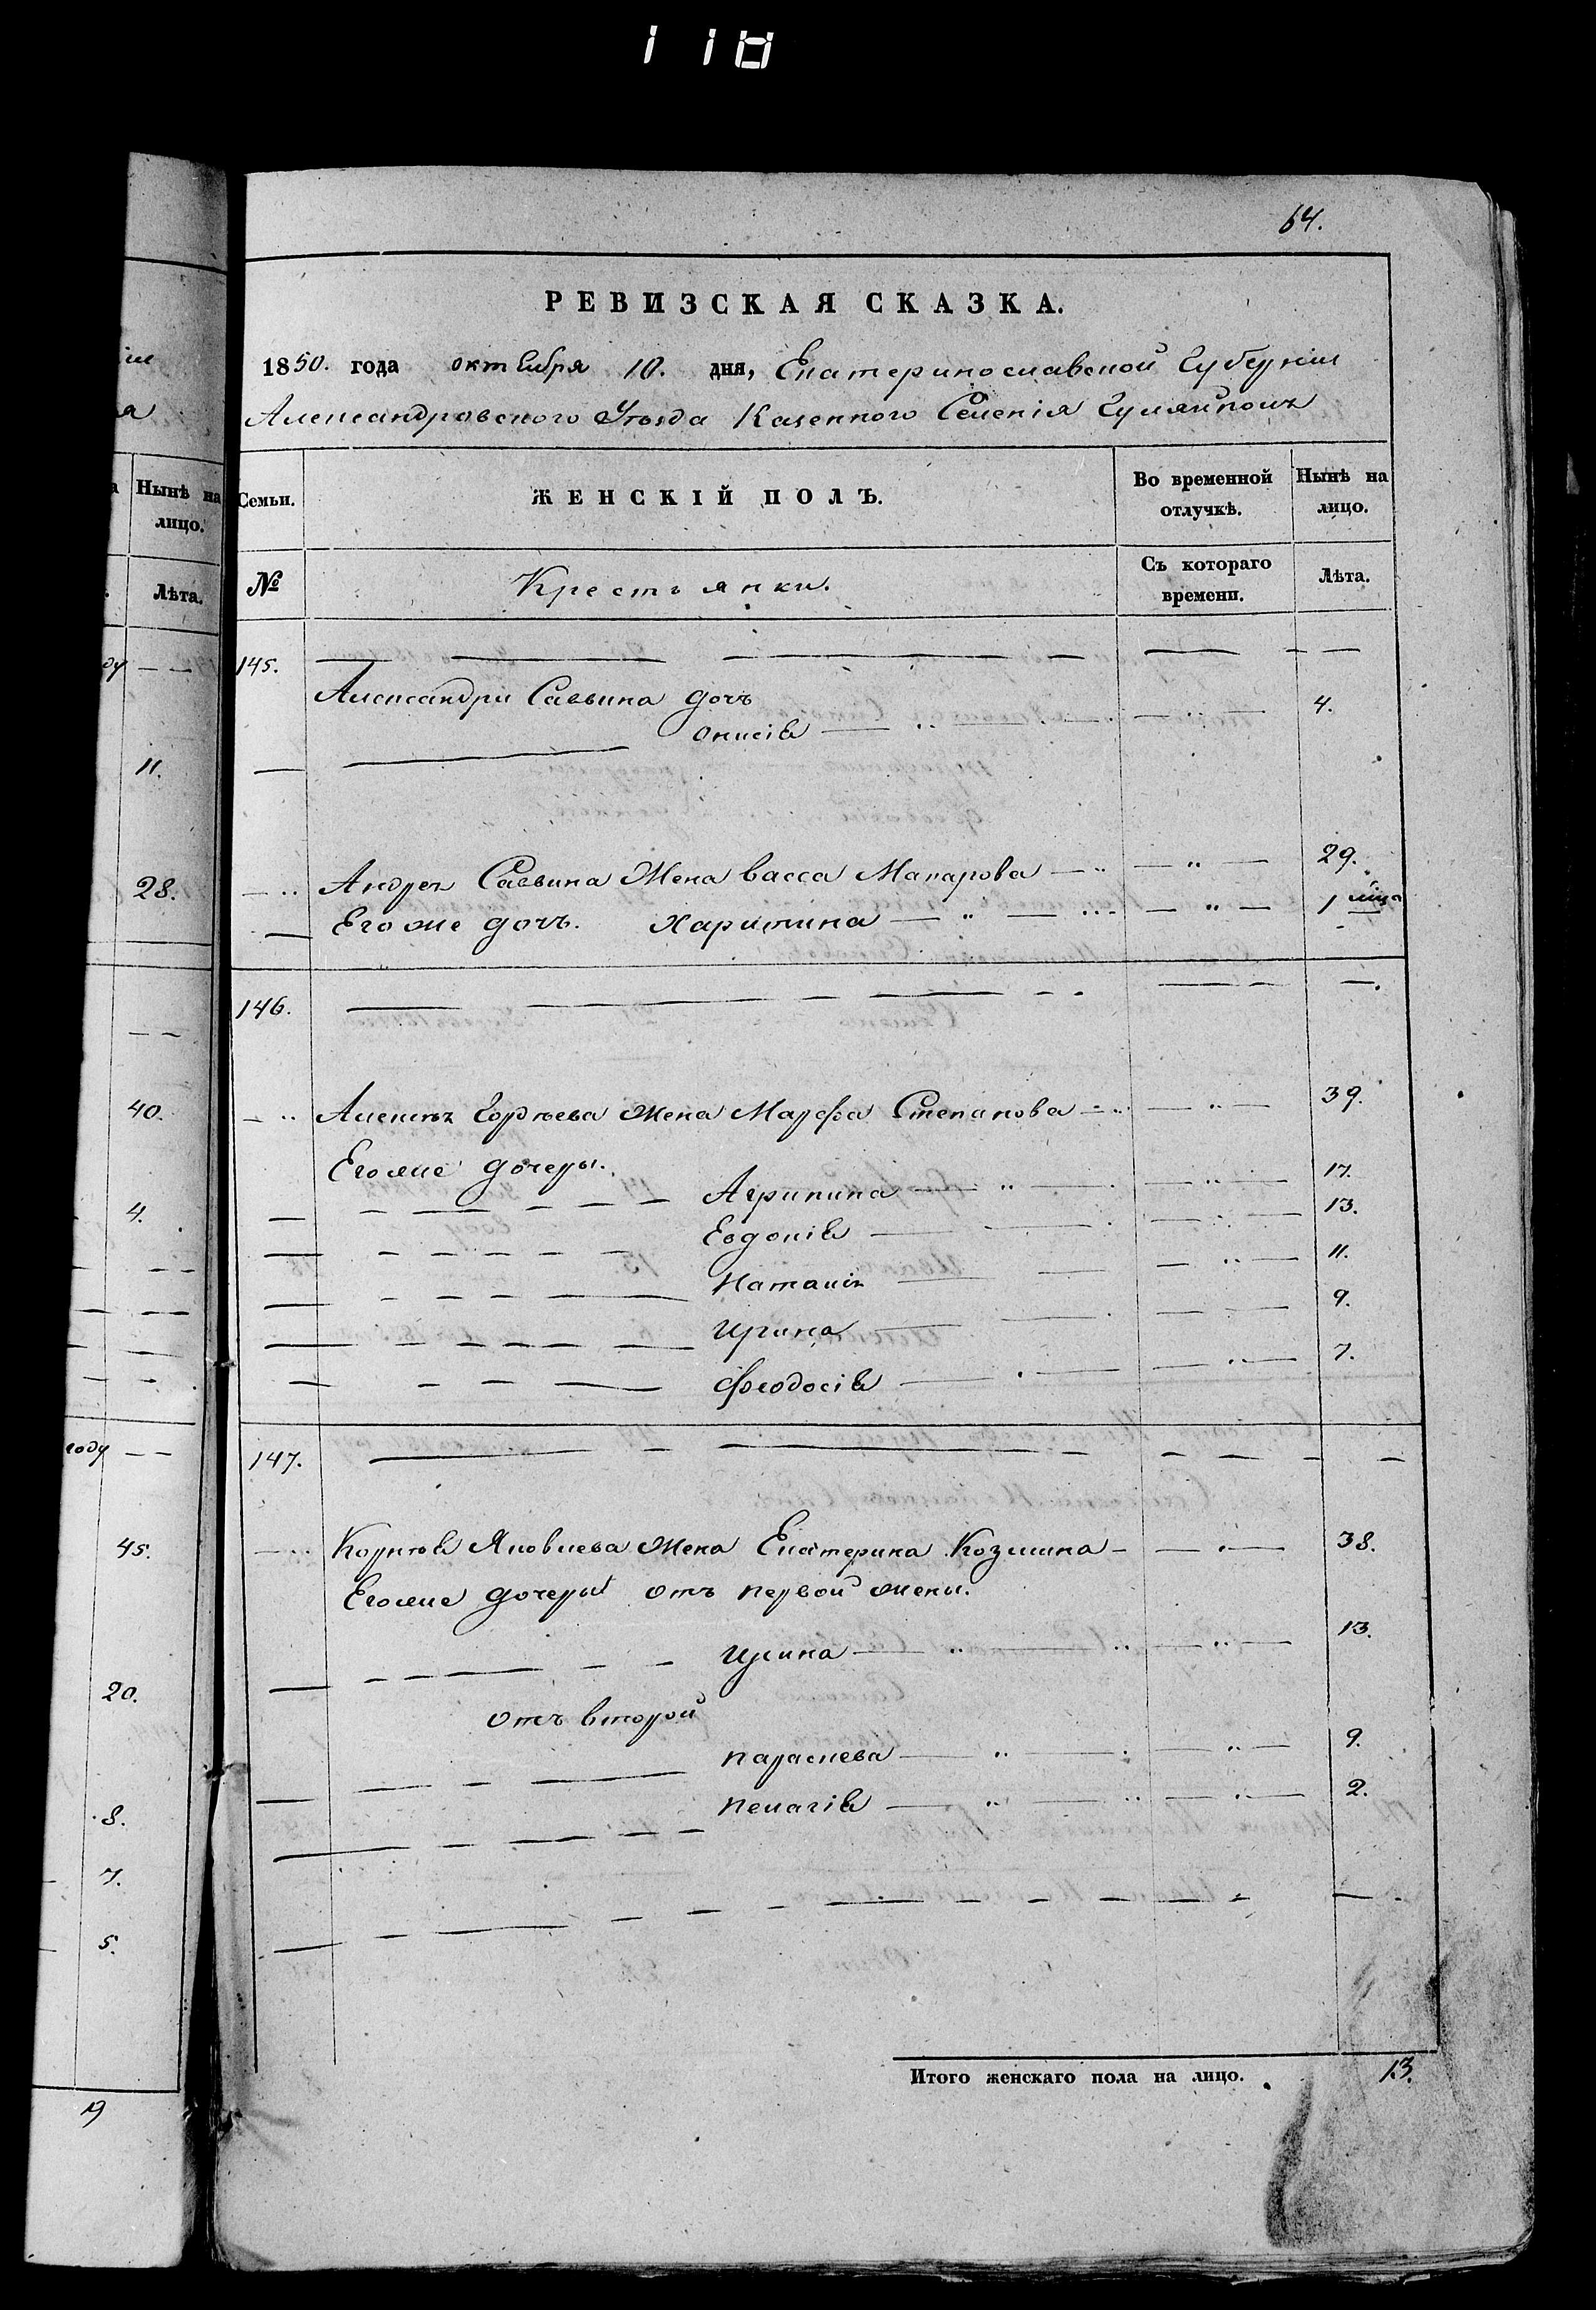 118
64.
РЕВИЗСКАЯ СКАЗКА.
1850. года октября 10. дня, Екатеринославской Губерніи
Александровского Уѣзда Казенного Селенія Гуляйполь
Семьи.
ЖЕНСКІЙ ПОЛЪ.
Во временной отлучкѣ.
Нынѣ на лицо.
№
Крестьянки.
Съ котораго времени.
Лѣта.
145.
Александры Саввина дочь
Онисія 4.
Андрея Саввина Жена Васса Макарова 29.
Егоже дочь. Харитина 1
146.
Алексѣя Гордѣева Жена Марфа Степанова 39.
Егоже дочеры.
Агрипина 17.
Евдокія 13.
Наталія 11.
Ирина 9.
Феодосія 7.
147.
Корнѣя Яковлева Жена Екатерина Козмина 38.
Егоже дочеры отъ первой жены.
Ирина 13.
отъ второй
Параскева 9.
Пелагія 2.
Итого женскаго пола на лицо. 13.
Нынѣ на лицо.
Лѣта.
11.
28.
40.
4.
году
45.
20.
8.
7.
5.
19